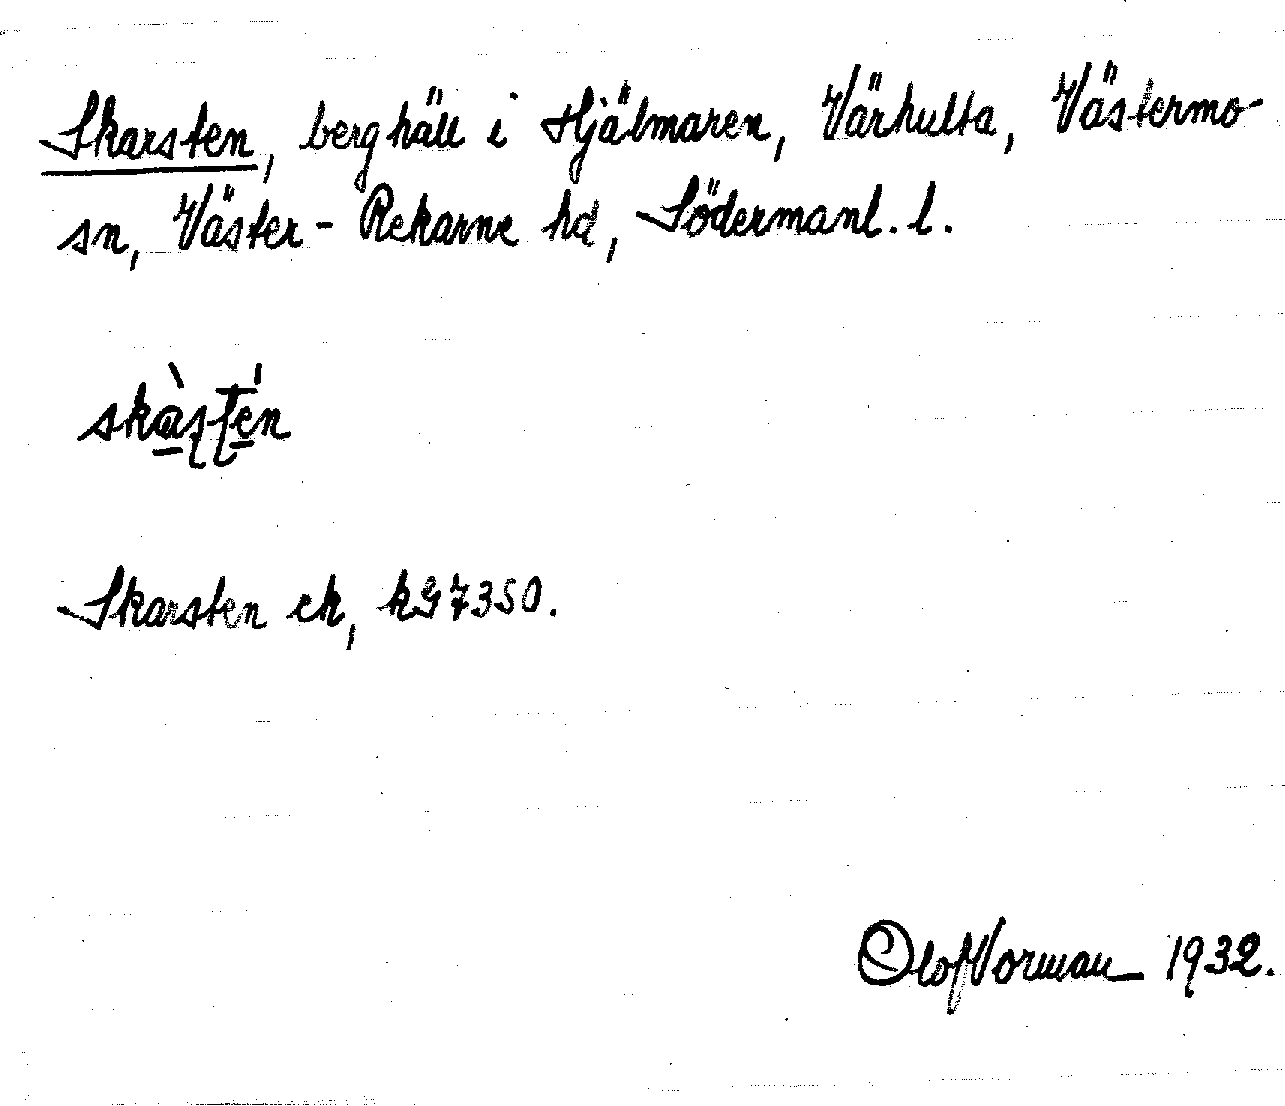 Skarsten, berghäll i Hjälmaren, Värhulta, Västermo
sn, Väster-Rekarne hd, Södermanl. l.
skàsten
Skarsten ek, kG 7350.
Olof Norman 1932.